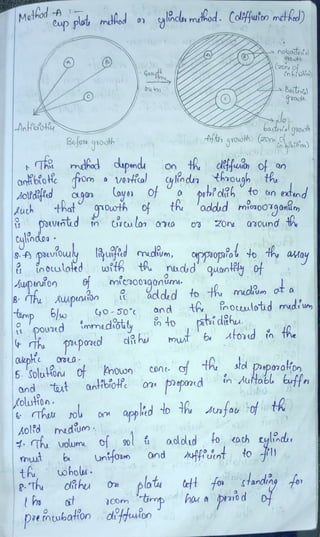 Method -A :-
cup plate method or cylinder method. (diffusion method)
A
B
C
Growth
24 hrs
A
B
C
no bacterial
growth
(zone of
inhibition)
Bacterial
growth
no
bacterial growth
(zone of
inhibition)
Antibiotic
Before growth
After growth
1. This method depends on the diffusion of an
antibiotic from a vertical cylinder through the
solidified agar layer of a petridish to an extend
such that growth of the added microorganism
is prevented in circular area or zone around the
cylinder.
2. A previously liquified medium, appropriate to the assay
is inoculated with the needed quantity of
suspension of microorganisms.
3. The suspension is added to the medium at a
temp b/w 40-50°C and the inoculated medium
is poured immediately in to petridishes.
4. The prepared dishes must be stored in the
aseptic area.
5. Solutions of known conc. of the std preparation
and test antibiotic are prepared in suitable buffer
solution.
6. These sol are applied to the surface of the
solid medium.
7. The volume of sol is added to each cylinder
must be uniform and sufficient to fill
the wholes.
8. The dishes or plate left for standing for
1 hrs at room temp has a period of
preincubation diffusion